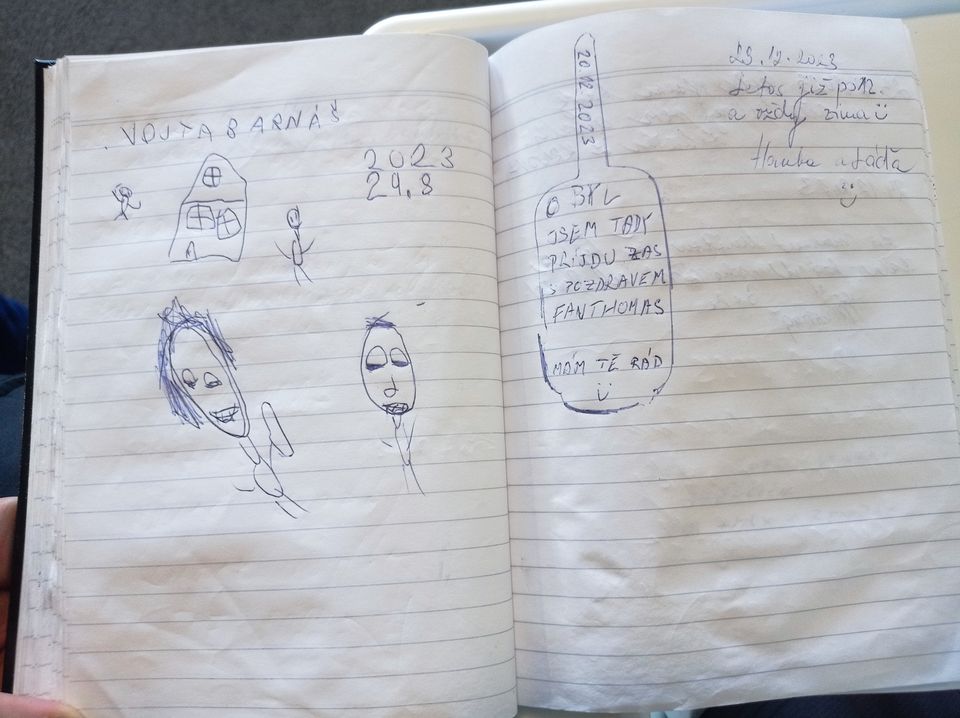 VOJTA BARNÁŠ
2023
29.8
20 12 2023
BYL
JSEM TADY
PŘIJDU ZAS
S POZDRAVEM
FANTHOMAS
MÁM TĚ RÁD
23.12.2023
Letos již po 12.
a vždy zima
a Láďa